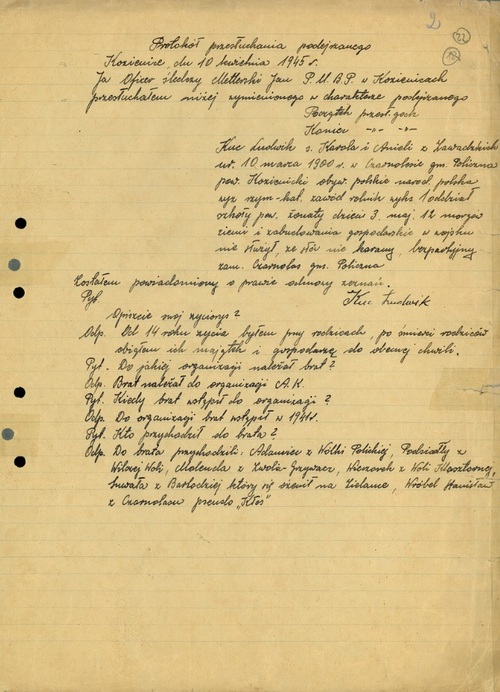 2
22
Protokół przesłuchania podejrzanego
Kozienice, dn 10 kwietnia 1945 r.
Ja Oficer śledczy Metlerski Jan P.U.B.P. w Kozienicach
przesłuchałem niżej wymienionego w charakterze podejrzanego
Początek przesł. godz
Koniec -„- -„-
Kuc Ludwik s. Karola i Anieli z Zawadzkich
ur. 10 marca 1900 r. w Czarnolesie gm. Policzna
pow. Kozienicki obyw. polskie narod. polska
wyz rzym-kat. zawód rolnik wyks 1 oddział
szkoły pow. żonaty dzieci 3. maj. 12 morgów
ziemi i zabudowania gospodarskie w wojsku
nie służył, ze słów nie karany, bezpartyjny
zam. Czarnolas gm. Policzna
Zostałem powiadomiony o prawie odmowy zeznań.
Kuc Ludwik
Pyt.
Opiszcie swój życiorys?
Odp. Od 14 roku życia byłem przy rodzicach, po śmierci rodziców
objąłem ich majątek i gospodarzę do obecnej chwili.
Pyt. Do jakiej organizacji należał brat?
Odp. Brat należał do organizacji A.K.
Pyt. Kiedy brat wstąpił do organizacji?
Odp. Do organizacji brat wstąpił w 1941 r.
Pyt. Kto przychodził do brata?
Odp. Do brata przychodzili: Adamiec z Wólki Polickiej, Podsiadły z
Wilczej Woli, Molenda z Zwola-Grzywacz, z Woli Klasztornej,
z Bartodziej który się ożenił na Zielonce, Wróbel Stanisław
z Czarnolasu pseudo „Kłos"